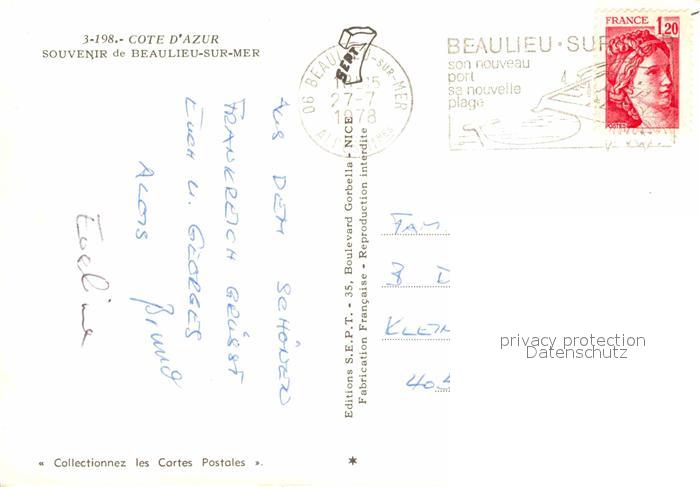 3-198.- COTE D'AZUR
SOUVENIR de BEAULIEU-SUR-MER
AUS DEM SCHÖNEN
FRANKREICH GRÜSST
EUCH U. GEORGES
ALOIS Bruno
Eveline
« Collectionnez les Cartes Postales ».
Editions S.E.P.T. - 35, Boulevard Gorbella - NICE
Fabrication Française - Reproduction interdite
SEPT
06 BEAULIEU-SUR-MER
27-7
1978
BEAULIEU·SUR
son nouveau
port
sa nouvelle
plage
FRANCE
1,20
POSTES
FAM.
KLEIN
privacy protection
Datenschutz